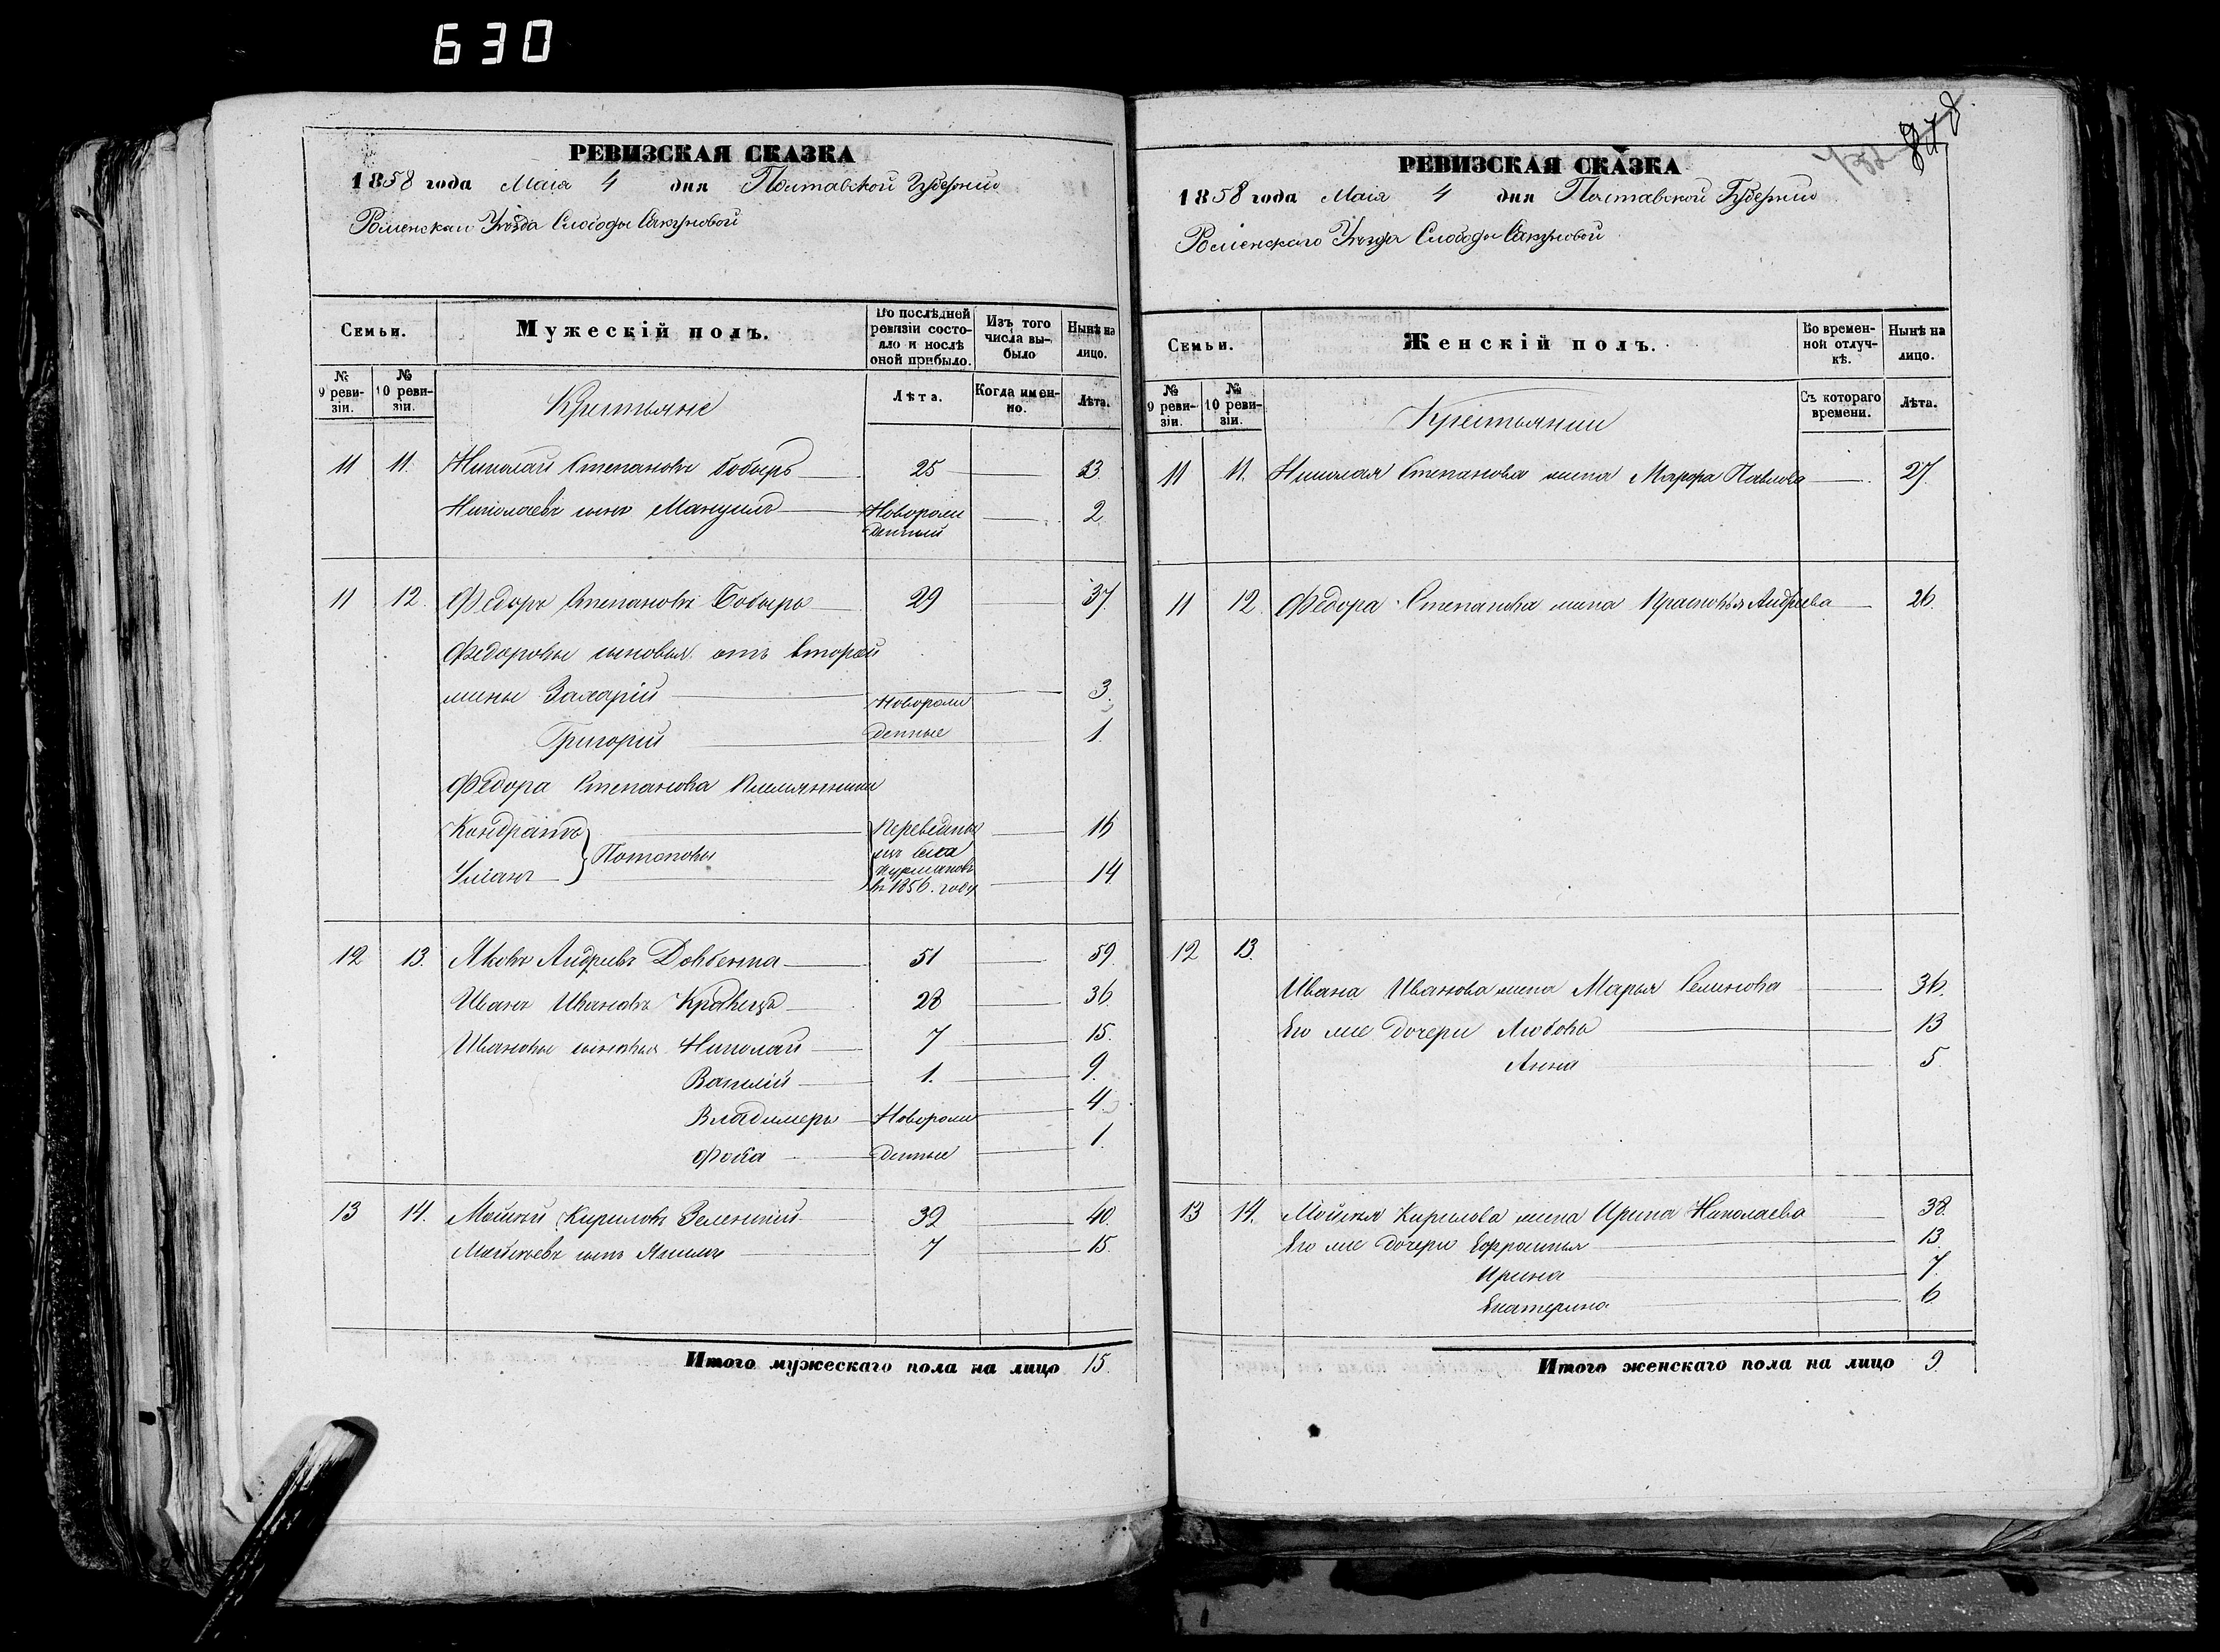 630
РЕВИЗСКАЯ СКАЗКА
1858 года Маія 4 дня Полтавской Губерніи
Роменскаго Уѣзда Слободы
Семьи.
Мужескій полъ.
Во послѣдней ревизіи состояло и послѣ оной прибыло.
Изъ того числа выбыло
Нынѣ на лицо.
№ 9 ревизіи.
№ 10 ревизіи.
Крестьяне
Лѣта.
Когда именно.
Лѣта.
11 11. Николай Степановъ Бобырь 25 33.
Николаевъ сынъ Мануилъ Новорожденный 2
11 12. Федоръ Степановъ Бобырь 29 37.
Федоровы сыновья отъ второй
жены Захарій Новорож 3.
Григорій денные 1.
Федора Степанова Племянники
Кондратъ } Потаповы Переведены 16
изъ села
Уліанъ 14
въ 1856. году
12 13. Яковъ Андреевъ Довбенка 51 59.
Иванъ Ивановъ Кравецъ 28 36.
Ивановы сыновья Николай 7 15.
Василій 1. 9.
Владимеръ Новорож 4.
Фока денные 1.
13 14. Мойсей Кириловъ Зеленскій 32 40.
Мойсеевъ сынъ Якимъ 7 15.
Итого мужескаго пола на лицо 15.
РЕВИЗСКАЯ СКАЗКА
1858 года Маія 4 дня Полтавской Губерніи
Роменскаго Уѣзда Слободы
Семьи.
Женскій полъ.
Во временной отлучкѣ.
Нынѣ на лицо.
№ 9 ревизіи.
№ 10 ревизіи.
Крестьянки
Съ котораго времени.
Лѣта.
11 11. Николая Степанова жена Марфа Павлова 27.
11 12. Федора Степанова жена Прасковья Андреева 26.
12 13.
Ивана Иванова жена Марья Семенова 36.
Его же дочери Любовь 13
Анна 5.
13 14. Мойсея Кирилова жена Ирина Николаева 38.
Его же дочери Ефросинья 13
Ирина 7.
Екатерина 6.
Итого женскаго пола на лицо 9